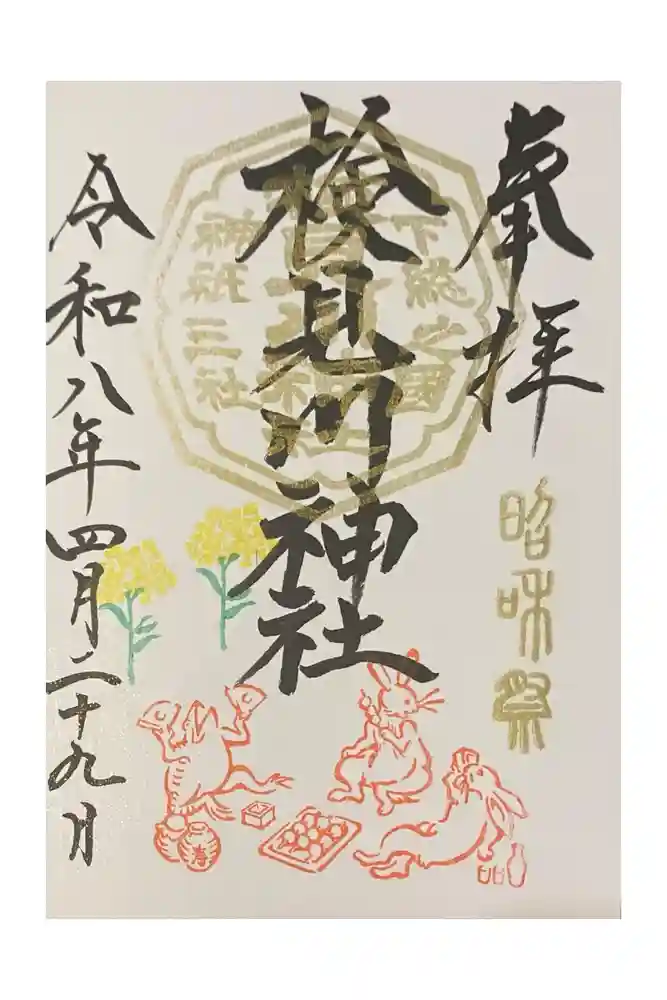 奉拝
昭和祭
下総之國
検見川神社
神祇三社
令和八年四月二十九日
寿